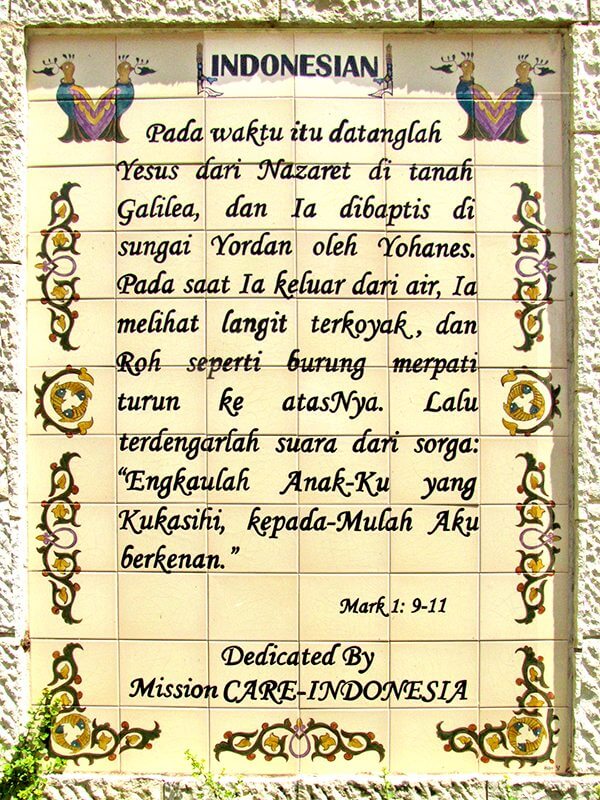 INDONESIAN
Pada waktu itu datanglah
Yesus dari Nazaret di tanah
Galilea, dan Ia dibaptis di
sungai Yordan oleh Yohanes.
Pada saat Ia keluar dari air, Ia
melihat langit terkoyak, dan
Roh seperti burung merpati
turun ke atasNya. Lalu
terdengarlah suara dari sorga:
“Engkaulah Anak-Ku yang
Kukasihi, kepada-Mulah Aku
berkenan.”
Mark 1: 9-11
Dedicated By
Mission CARE-INDONESIA